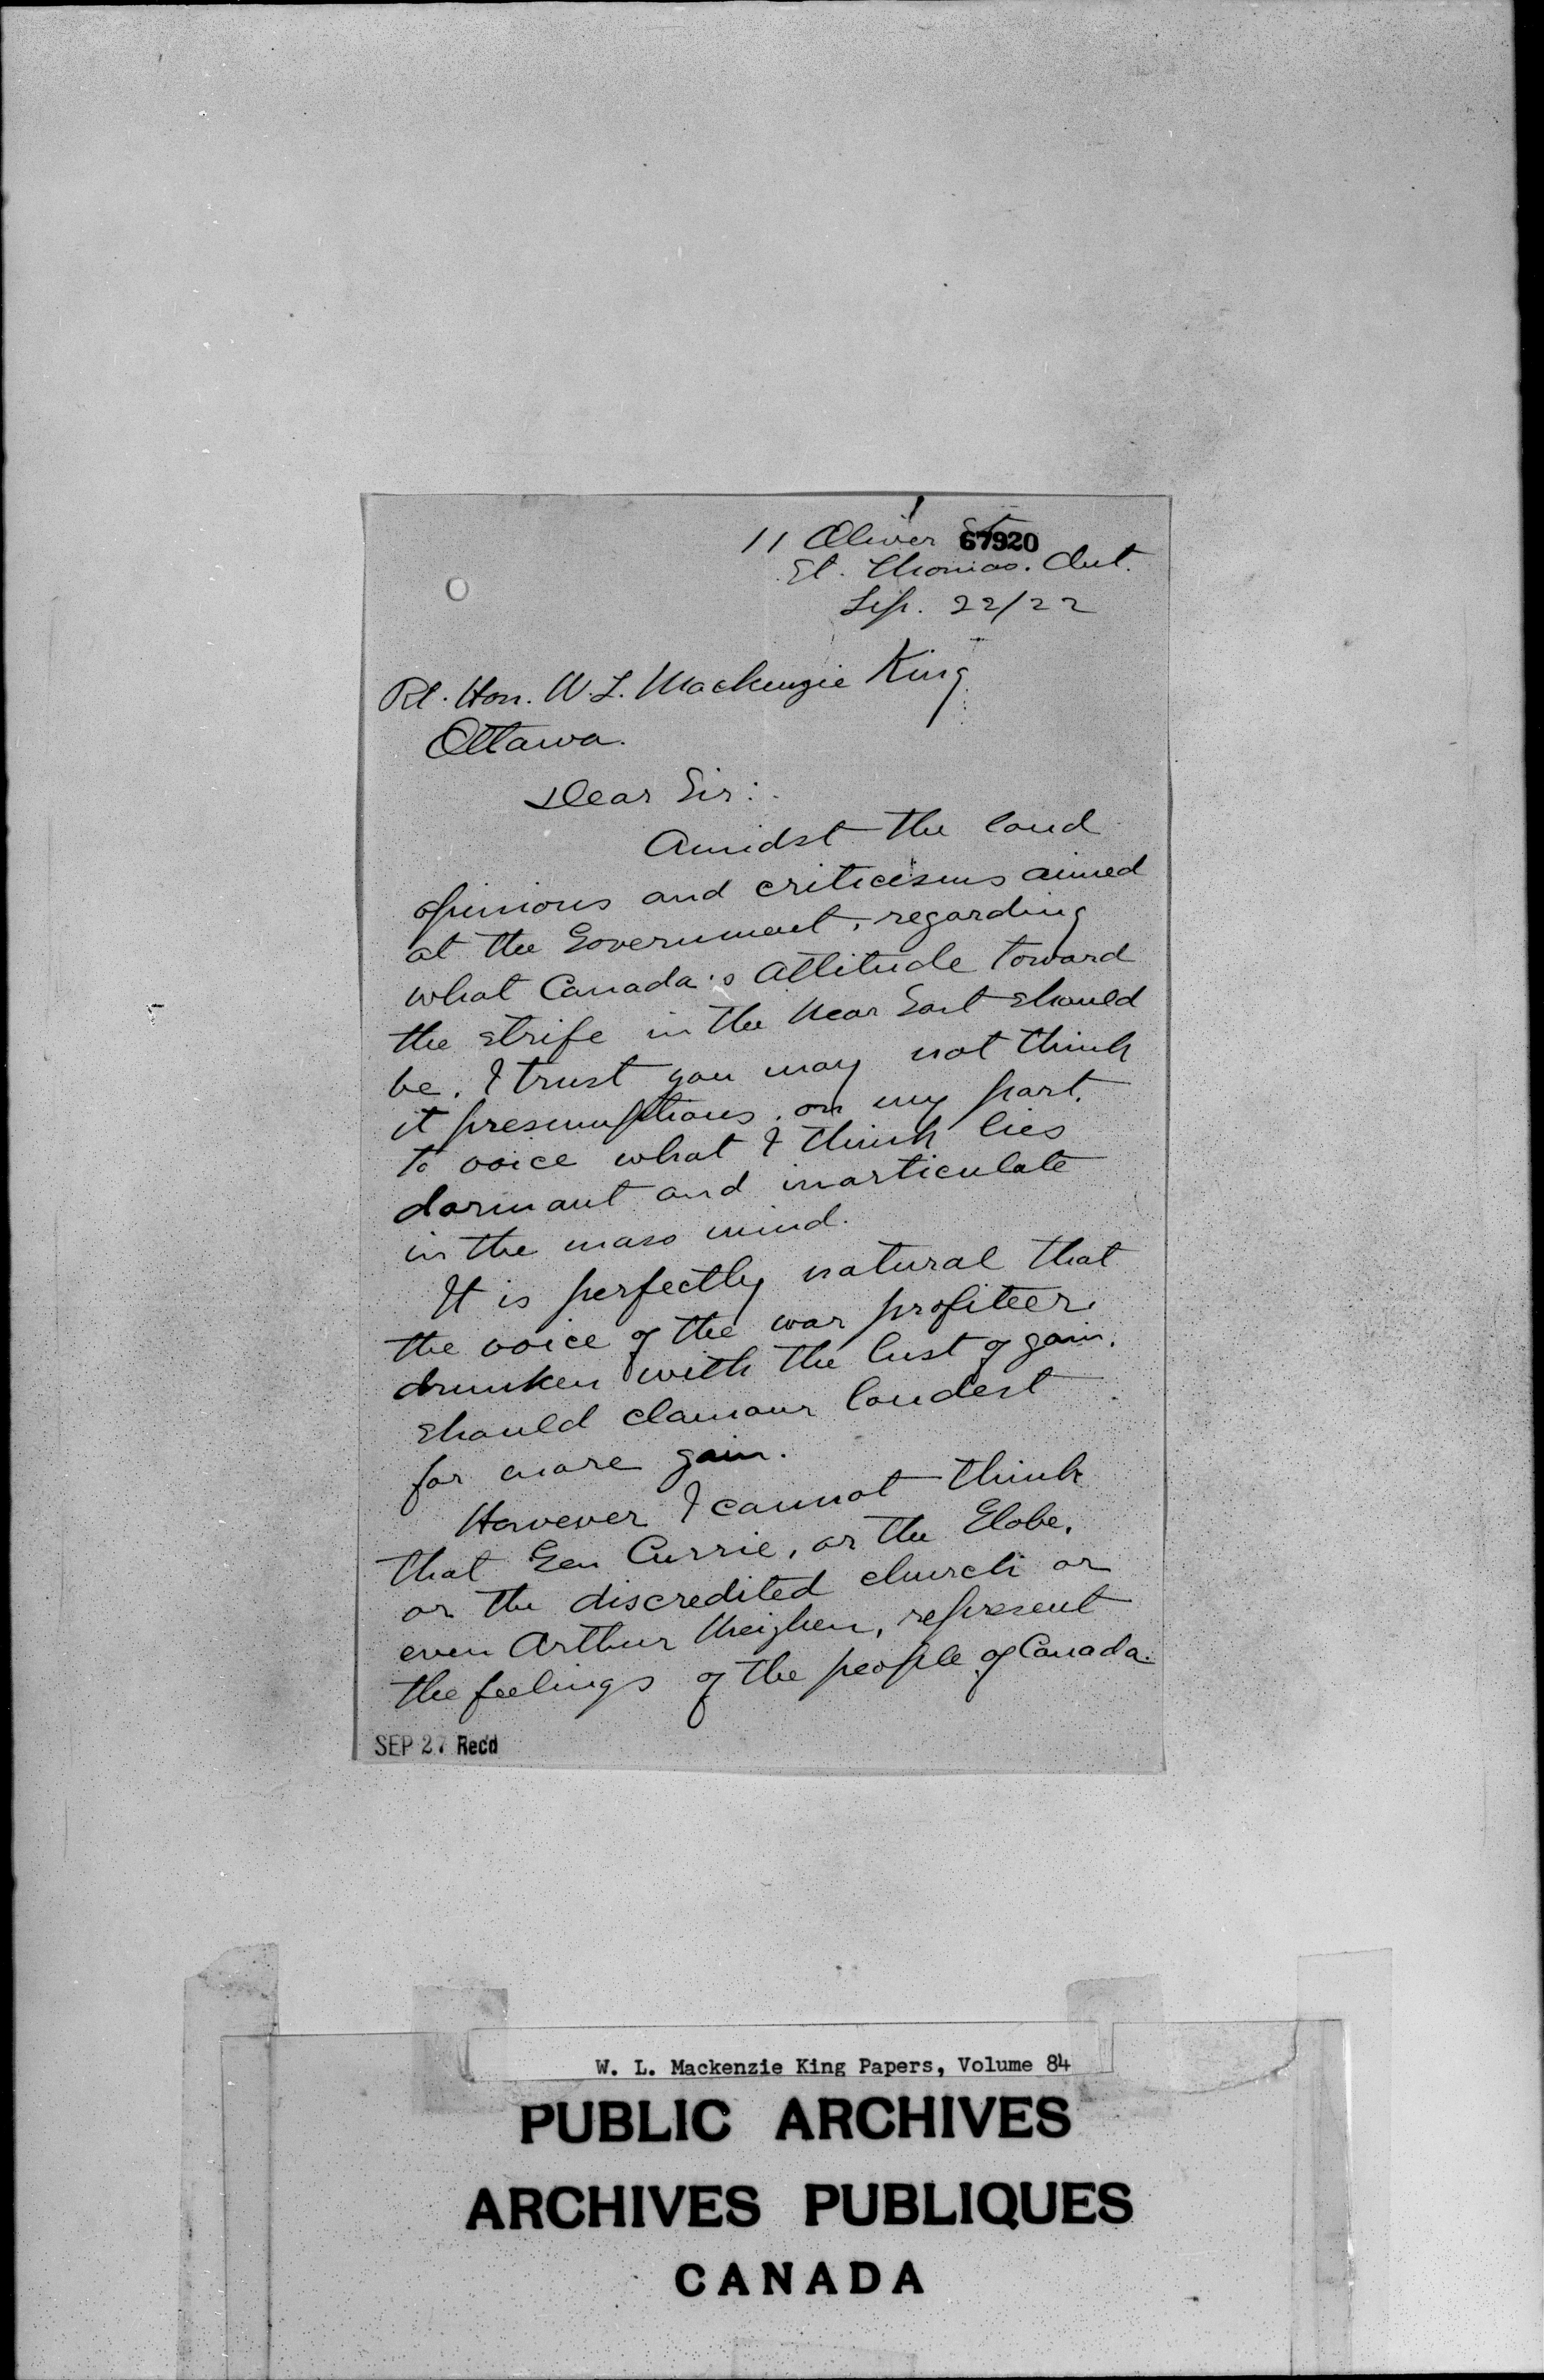 11 Oliver St
67920
St. Thomas. Ont.
Sep. 22/22
Rt. Hon. W. L. Mackenzie King
Ottawa.
Dear Sir:
Amidst the loud
opinions and criticisms aimed
at the Government, regarding
what Canada's attitude toward
the strife in the Near East should
be. I trust you may not think
it presumptious, on my part,
to voice what I think lies
dormant and inarticulate
in the mass mind.
It is perfectly natural that
the voice of the war profiteer,
drunken with the lust of gain,
should clamour loudest
for more gain.
However I cannot think
that Gen Currie, or the Globe,
or the discredited church or
even Arthur Meighen, represent
the feelings of the people of Canada.
SEP 27 Rec'd
W. L. Mackenzie King Papers, Volume 84
PUBLIC ARCHIVES
ARCHIVES PUBLIQUES
CANADA